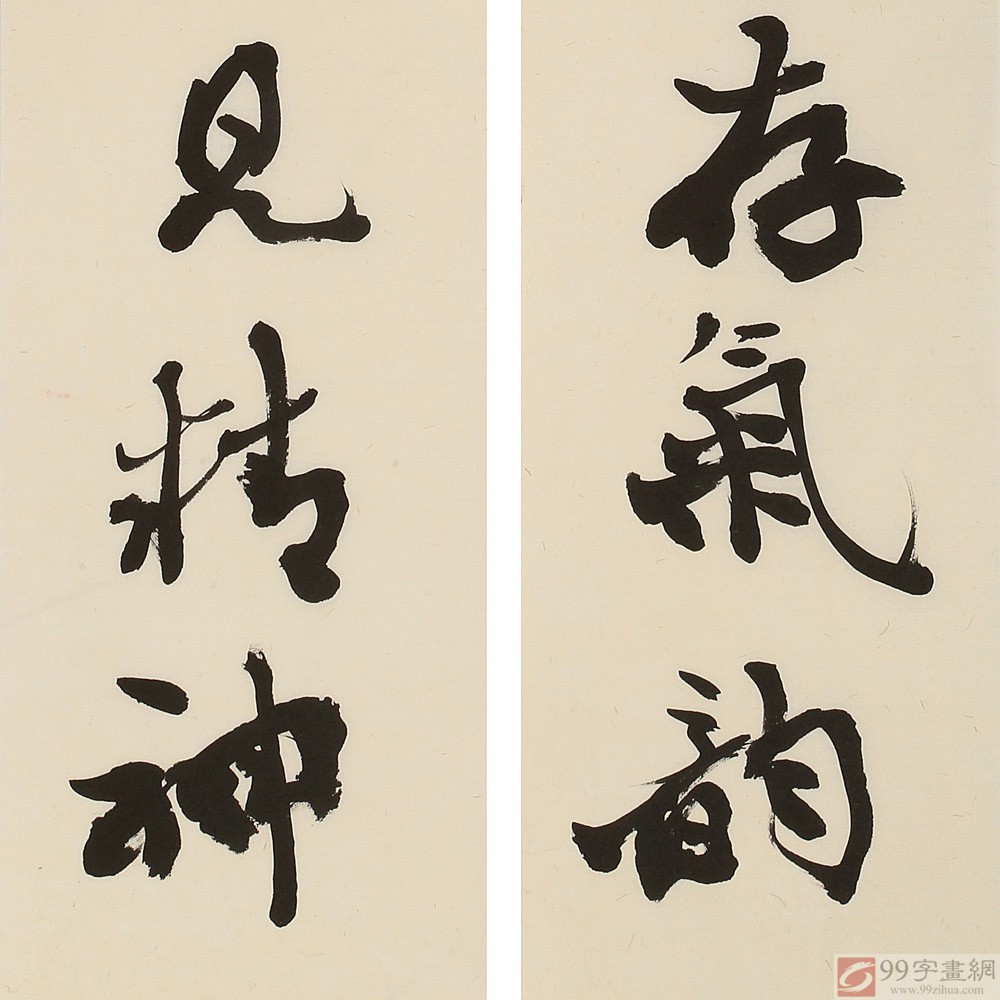 存氣韵
見精神
99字畫網
www.99zihua.com